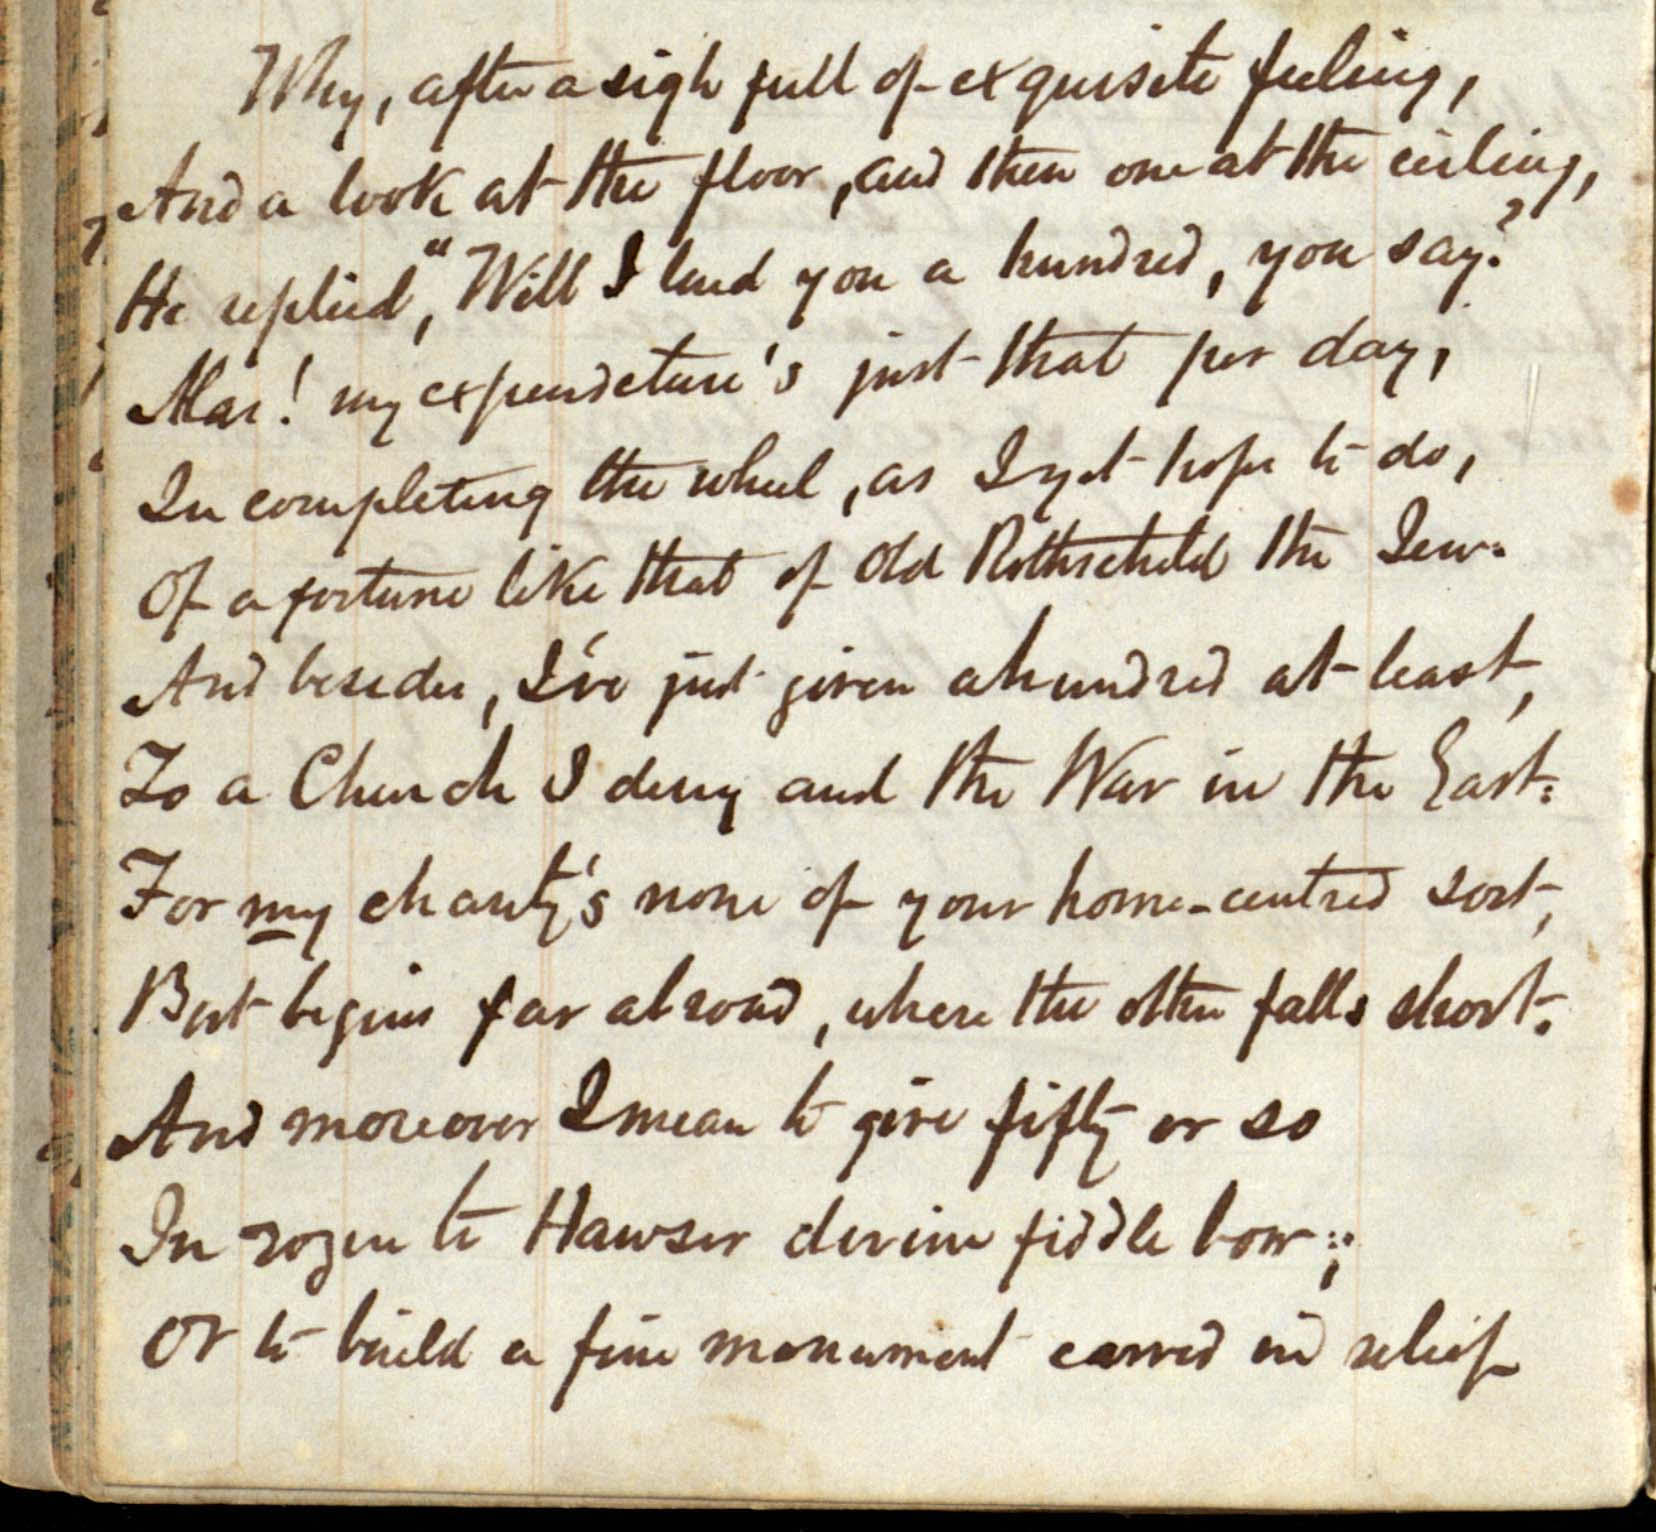 Why, after a sigh full of exquisite feeling,
And a look at the floor, and then one at the ceiling,
He replied, "Will I lend you a hundred, you say?
Alas! my expenditure's just that per day,
In completing the wheel, as I yet hope to do,
Of a fortune like that of Old Rothschild the Jew.
And besides, I've just given a hundred at least,
To a Church I deny and the War in the East:
For my charity's none of your home-centred sort,
But begins far abroad, where the other falls short.
And moreover I mean to give fifty or so
In rozin to Hawser divine fiddle bow;
Or to build a fine monument carved in relief